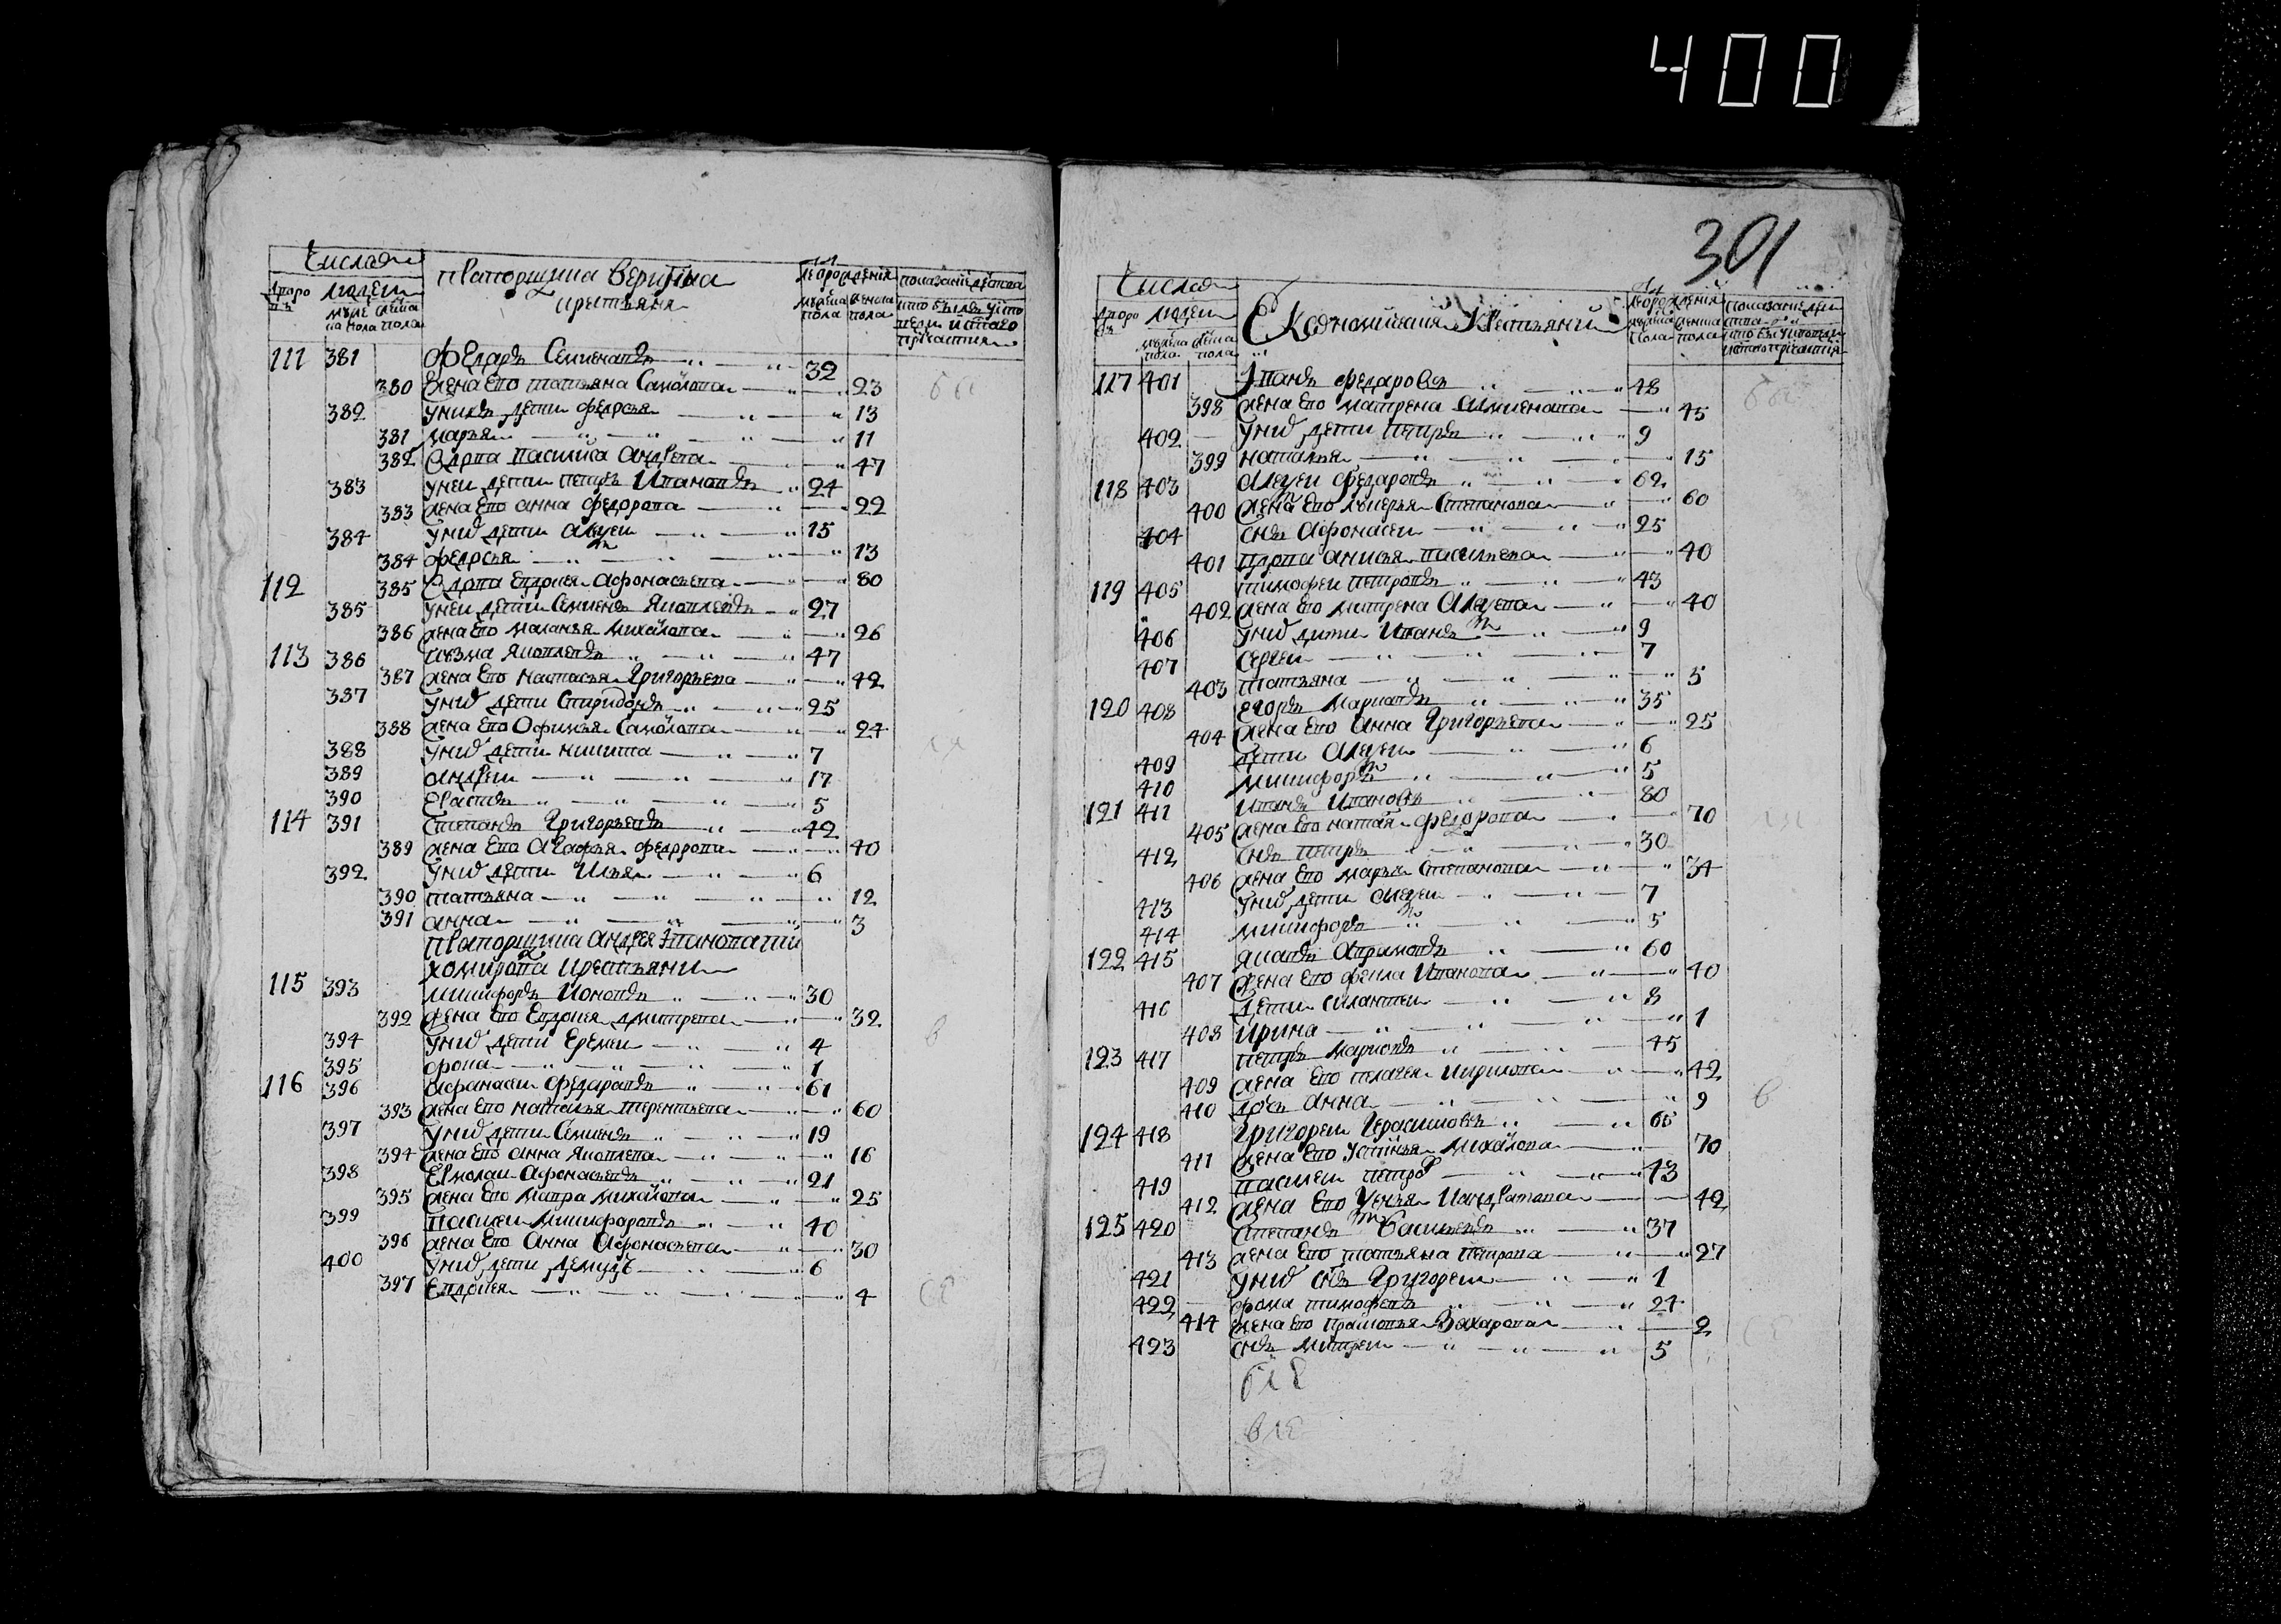 400
Числа
прапорщика Веригина
крестьяня
людеи
111 381 Федаръ Семиенавъ 32
380 жена ево татьяна Самойлова 23
382 уникъ дети федосья 13
381 марья 11
382 вдова василиса Андрева 47
383 унеи дети петръ Ивановъ 24
383 жена ево анна федорова 22
384 униӧ дети Алеѯеи 15
384 федосья 13
112 385 вдова евдокея Афонасьева 80
385 унеи дети Семиенъ Яковлевъ 27
386 жена ево маланья Михайлова 26
113 386 козма Яковлевъ 47
387 жена ево настасья Григорьева 42
387 унихъ дети Спиридонъ 25
388 жена ево Офимья Самойлова 24
388 унихъ дети никита 7
389 андреи 17
390 Ерастъ 5
114 391 Степанъ Григорьевъ 42
389 жена ево Агафья федорова 40
392 унихъ дети Илья 6
390 татьяна 12
391 анна 3
прапорщика андрея Іванова
хомякова крестьяни
115 393 никифоръ 30
392 жена ево Евдокея дмитрева 32
394 унихъ дети Еремеи 4
395 фока 1
116 396 афанасеи федаравъ 61
393 жена ево наталья терентьева 60
397 унихъ дети Семиенъ 19
394 жена ево анна Яковлева 16
398 Ермолаи Афонасьевъ 21
395 жена ево мавра михайлова 25
399 василеи никифоровъ 40
396 жена ево Анна Афонасьева 30
400 унихъ дети демидъ 6
397 Евдокея 4
301
Числа
Екадномическия крестьяни
людеи
117 401 Іванъ федаровъ 48
398 жена ево матрена 45
402 унихъ дети петръ 9
399 наталья 15
118 403 Алеѯеи федаровъ 62
400 жена ево лукерья Степанова 60
404 снъ Афонасеи 25
401 вдова анисья васильева 40
119 405 тимофеи петровъ 43
402 жена ево матрена Алеѯева 40
406 унихъ дити Иванъ 9
407 Сергеи 7
403 татьяна 5
120 408 егоръ Марковъ 35
404 жена ево анна Григорьева 25
409 дети Алеѯеи 6
410 никифоръ 5
121 411 Иванъ Ивановъ 80
405 жена ево федорова 70
412 снъ петръ 30
406 жена ево марья Степанова 34
413 унихъ дети алеѯеи 7
414 никифоръ 5
122 415 60
407 жена ево фекла Иванова 40
416 дети силантеи 8
408 Ирина 1
123 417 петръ марковъ 45
409 жена ево пелагея кирилова 42
410 дочь анна 9
124 418 Григореи Герасимовъ 65
411 жена ево устинья михайлова 70
419 василеи петров 43
412 жена ево Кондратова 42
125 420 Степанъ Васильевъ 37
413 жена ево татьяна петрова 27
421 унихъ снъ Григореи 1
422 фома тимофевъ 24
414 жена ево прасковья Захарова 2
423 снъ митреи 5